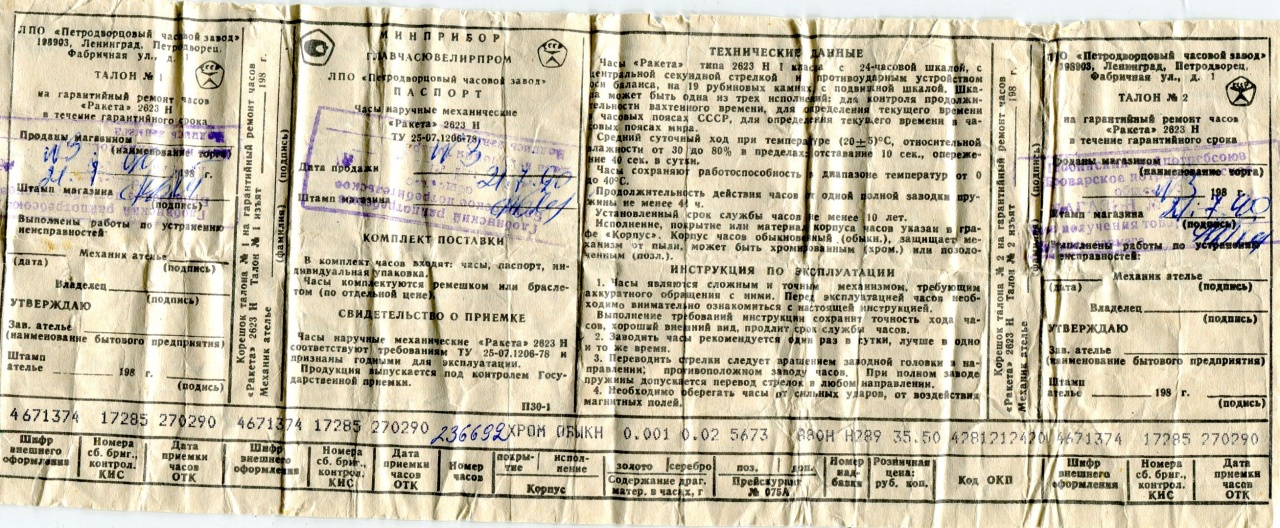 ЛПО «Петродворцовый часовой завод»
198903, Ленинград, Петродворец,
Фабричная ул., д. 1
ТАЛОН № 1
на гарантийный ремонт часов
«Ракета» 2623 Н
в течение гарантийного срока
Проданы магазином
(наименование торга)
№3
21.7.90
198 г.
Штамп магазина
(подпись)
Выполнены работы по устранению
неисправностей:
Механик ателье
(дата) (подпись)
Владелец
(подпись)
УТВЕРЖДАЮ
Зав. ателье
(наименование бытового предприятия)
Штамп
ателье 198 г.
(подпись)
Корешок талона № 1 на гарантийный ремонт часов
«Ракета» 2623 Н Талон № 1 изъят 198 г.
Механик ателье (фамилия) (подпись)
МИНПРИБОР
ГЛАВЧАСЮВЕЛИРПРОМ
ЛПО «Петродворцовый часовой завод»
ПАСПОРТ
Часы наручные механические
«Ракета» 2623 Н
ТУ 25-07.1206-78
№3
Дата продажи 21.7.90
Штамп магазина
КОМПЛЕКТ ПОСТАВКИ
В комплект часов входят: часы, паспорт, ин-
дивидуальная упаковка.
Часы комплектуются ремешком или брасле-
том (по отдельной цене).
СВИДЕТЕЛЬСТВО О ПРИЕМКЕ
Часы наручные механические «Ракета» 2623 Н
соответствуют требованиям ТУ 25-07.1206-78 и
признаны годными для эксплуатации.
Продукция выпускается под контролем Госу-
дарственной приемки.
П30-1
ТЕХНИЧЕСКИЕ ДАННЫЕ
Часы «Ракета» типа 2623 Н I класса с 24-часовой шкалой, с
центральной секундной стрелкой и противоударным устройством
оси баланса, на 19 рубиновых камнях, с подвижной шкалой. Шка-
ла может быть одна из трех исполнений: для контроля продолжи-
тельности вахтенного времени, для определения текущего времени
в часовых поясах СССР, для определения текущего времени в ча-
совых поясах мира.
Средний суточный ход при температуре (20±5)°С, относительной
влажности от 30 до 80% в пределах: отставание 10 сек., опереже-
ние 40 сек. в сутки.
Часы сохраняют работоспособность в диапазоне температур от 0
до 40°С.
Продолжительность действия часов от одной полной заводки пру-
жины не менее 44 ч.
Установленный срок службы часов не менее 10 лет.
Исполнение, покрытие или материал корпуса часов указан в гра-
фе «Корпус». Корпус часов обыкновенный (обыкн.), защищает ме-
ханизм от пыли, может быть хромированным (хром.) или позоло-
ченным (позл.).
ИНСТРУКЦИЯ ПО ЭКСПЛУАТАЦИИ
1. Часы являются сложным и точным механизмом, требующим
аккуратного обращения с ними. Перед эксплуатацией часов необ-
ходимо внимательно ознакомиться с настоящей инструкцией.
Выполнение требований инструкции сохранит точность хода ча-
сов, хороший внешний вид, продлит срок службы часов.
2. Заводить часы рекомендуется один раз в сутки, лучше в одно
и то же время.
3. Переводить стрелки следует вращением заводной головки в на-
правлении; противоположном заводу часов. При полном заводе
пружины допускается перевод стрелок в любом направлении.
4. Необходимо оберегать часы от сильных ударов, от воздействия
магнитных полей.
Корешок талона № 2 на гарантийный ремонт часов
«Ракета» 2623 Н Талон № 2 изъят 198 г.
Механик ателье (подпись)
ЛПО «Петродворцовый часовой завод»
198903, Ленинград, Петродворец,
Фабричная ул., д. 1
ТАЛОН № 2
на гарантийный ремонт часов
«Ракета» 2623 Н
в течение гарантийного срока
Проданы магазином
(наименование торга)
№3
198 г.
Штамп магазина 21.7.90
(подпись)
Выполнены работы по устранению
неисправностей:
Механик ателье
(дата) (подпись)
Владелец
(подпись)
УТВЕРЖДАЮ
Зав. ателье
(наименование бытового предприятия)
Штамп
ателье 198 г.
(подпись)
4671374 17285 270290 4671374 17285 270290 236692 ХРОМ ОБЫКН 0.001 0.02 5673 880Н Н289 35.50 4281212420 4671374 17285 270290
Шифр внешнего оформления
Номера сб. бриг., контрол. КИС
Дата приемки часов ОТК
Шифр внешнего оформления
Номера сб. бриг., контрол. КИС
Дата приемки часов ОТК
Номер часов
покры-тие исполнение
Корпус
золото серебро
Содержание драг. матер. в часах, г
поз. доп.
Прейскурант № 075А
Номер над-бавки
Розничная цена: руб. коп.
Код ОКП
Шифр внешнего оформления
Номера сб. бриг., контрол. КИС
Дата приемки часов ОТК